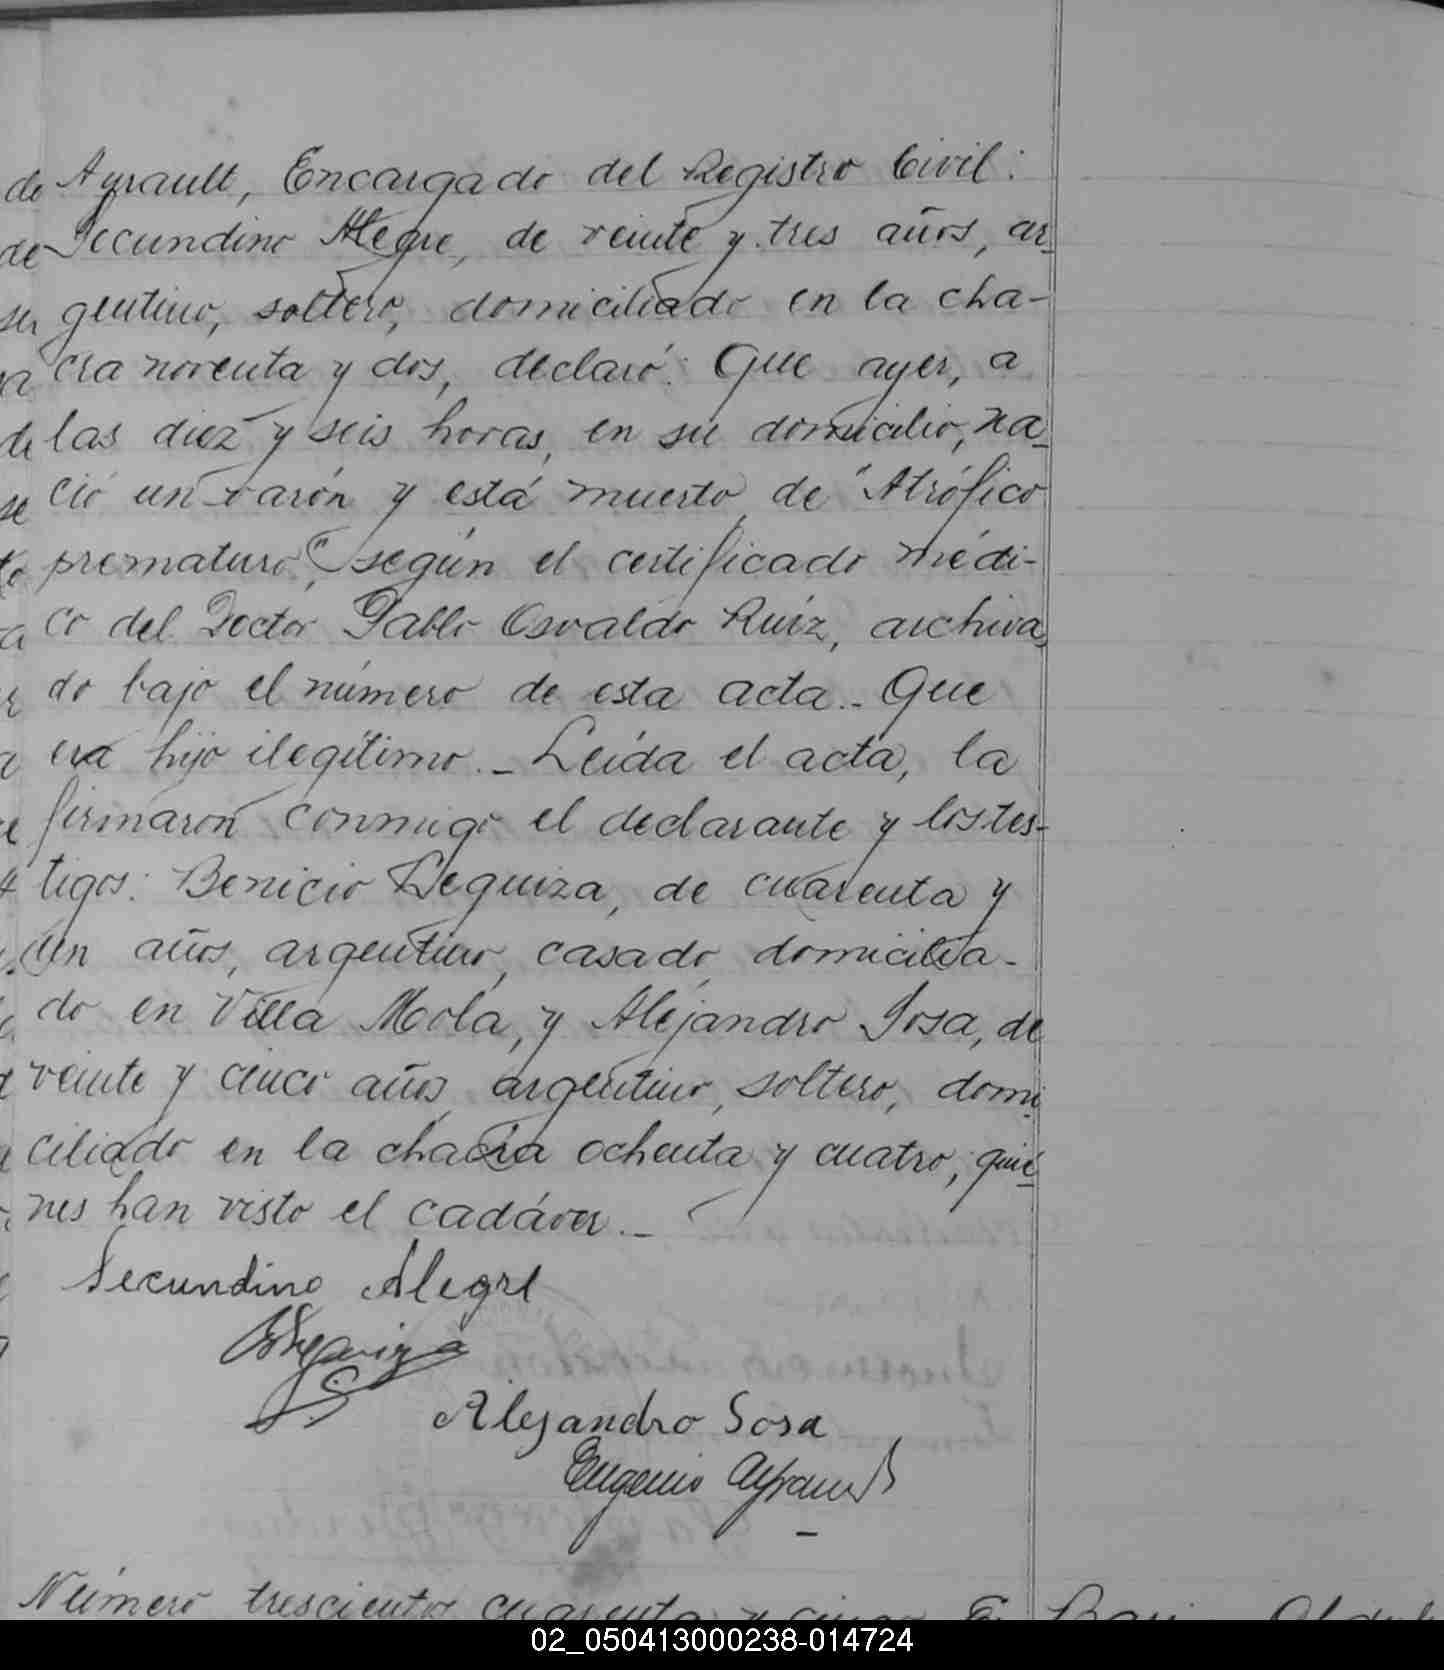 de Ayrault, Encargado del Registro Civil:
Secundino Alegre, de veinte y tres años, ar-
gentino, soltero, domiciliado en la cha-
cra noventa y dos, declaró: Que ayer, a
las diez y seis horas, en su domicilio, na-
ció un varón y está muerto de "Atrófico
prematuro", según el certificado médi-
co del Doctor Pablo Osvaldo Ruíz, archiva-
do bajo el número de esta acta.- Que
era hijo ilegítimo.- Leída el acta, la
firmaron conmigo el declarante y los tes-
tigos: Benicio Leguiza, de cuarenta y
un años, argentino, casado domicilia-
do en Villa Mola, y Alejandro Sosa, de
veinte y cinco años, argentino, soltero, domi-
ciliado en la chacra ochenta y cuatro, quie-
nes han visto el cadáver.-
Secundino Alegre
BLeguiza
Alejandro Sosa
Eugenio Ayrault
Número trescientos cuarenta y cinco
02_050413000238-014724